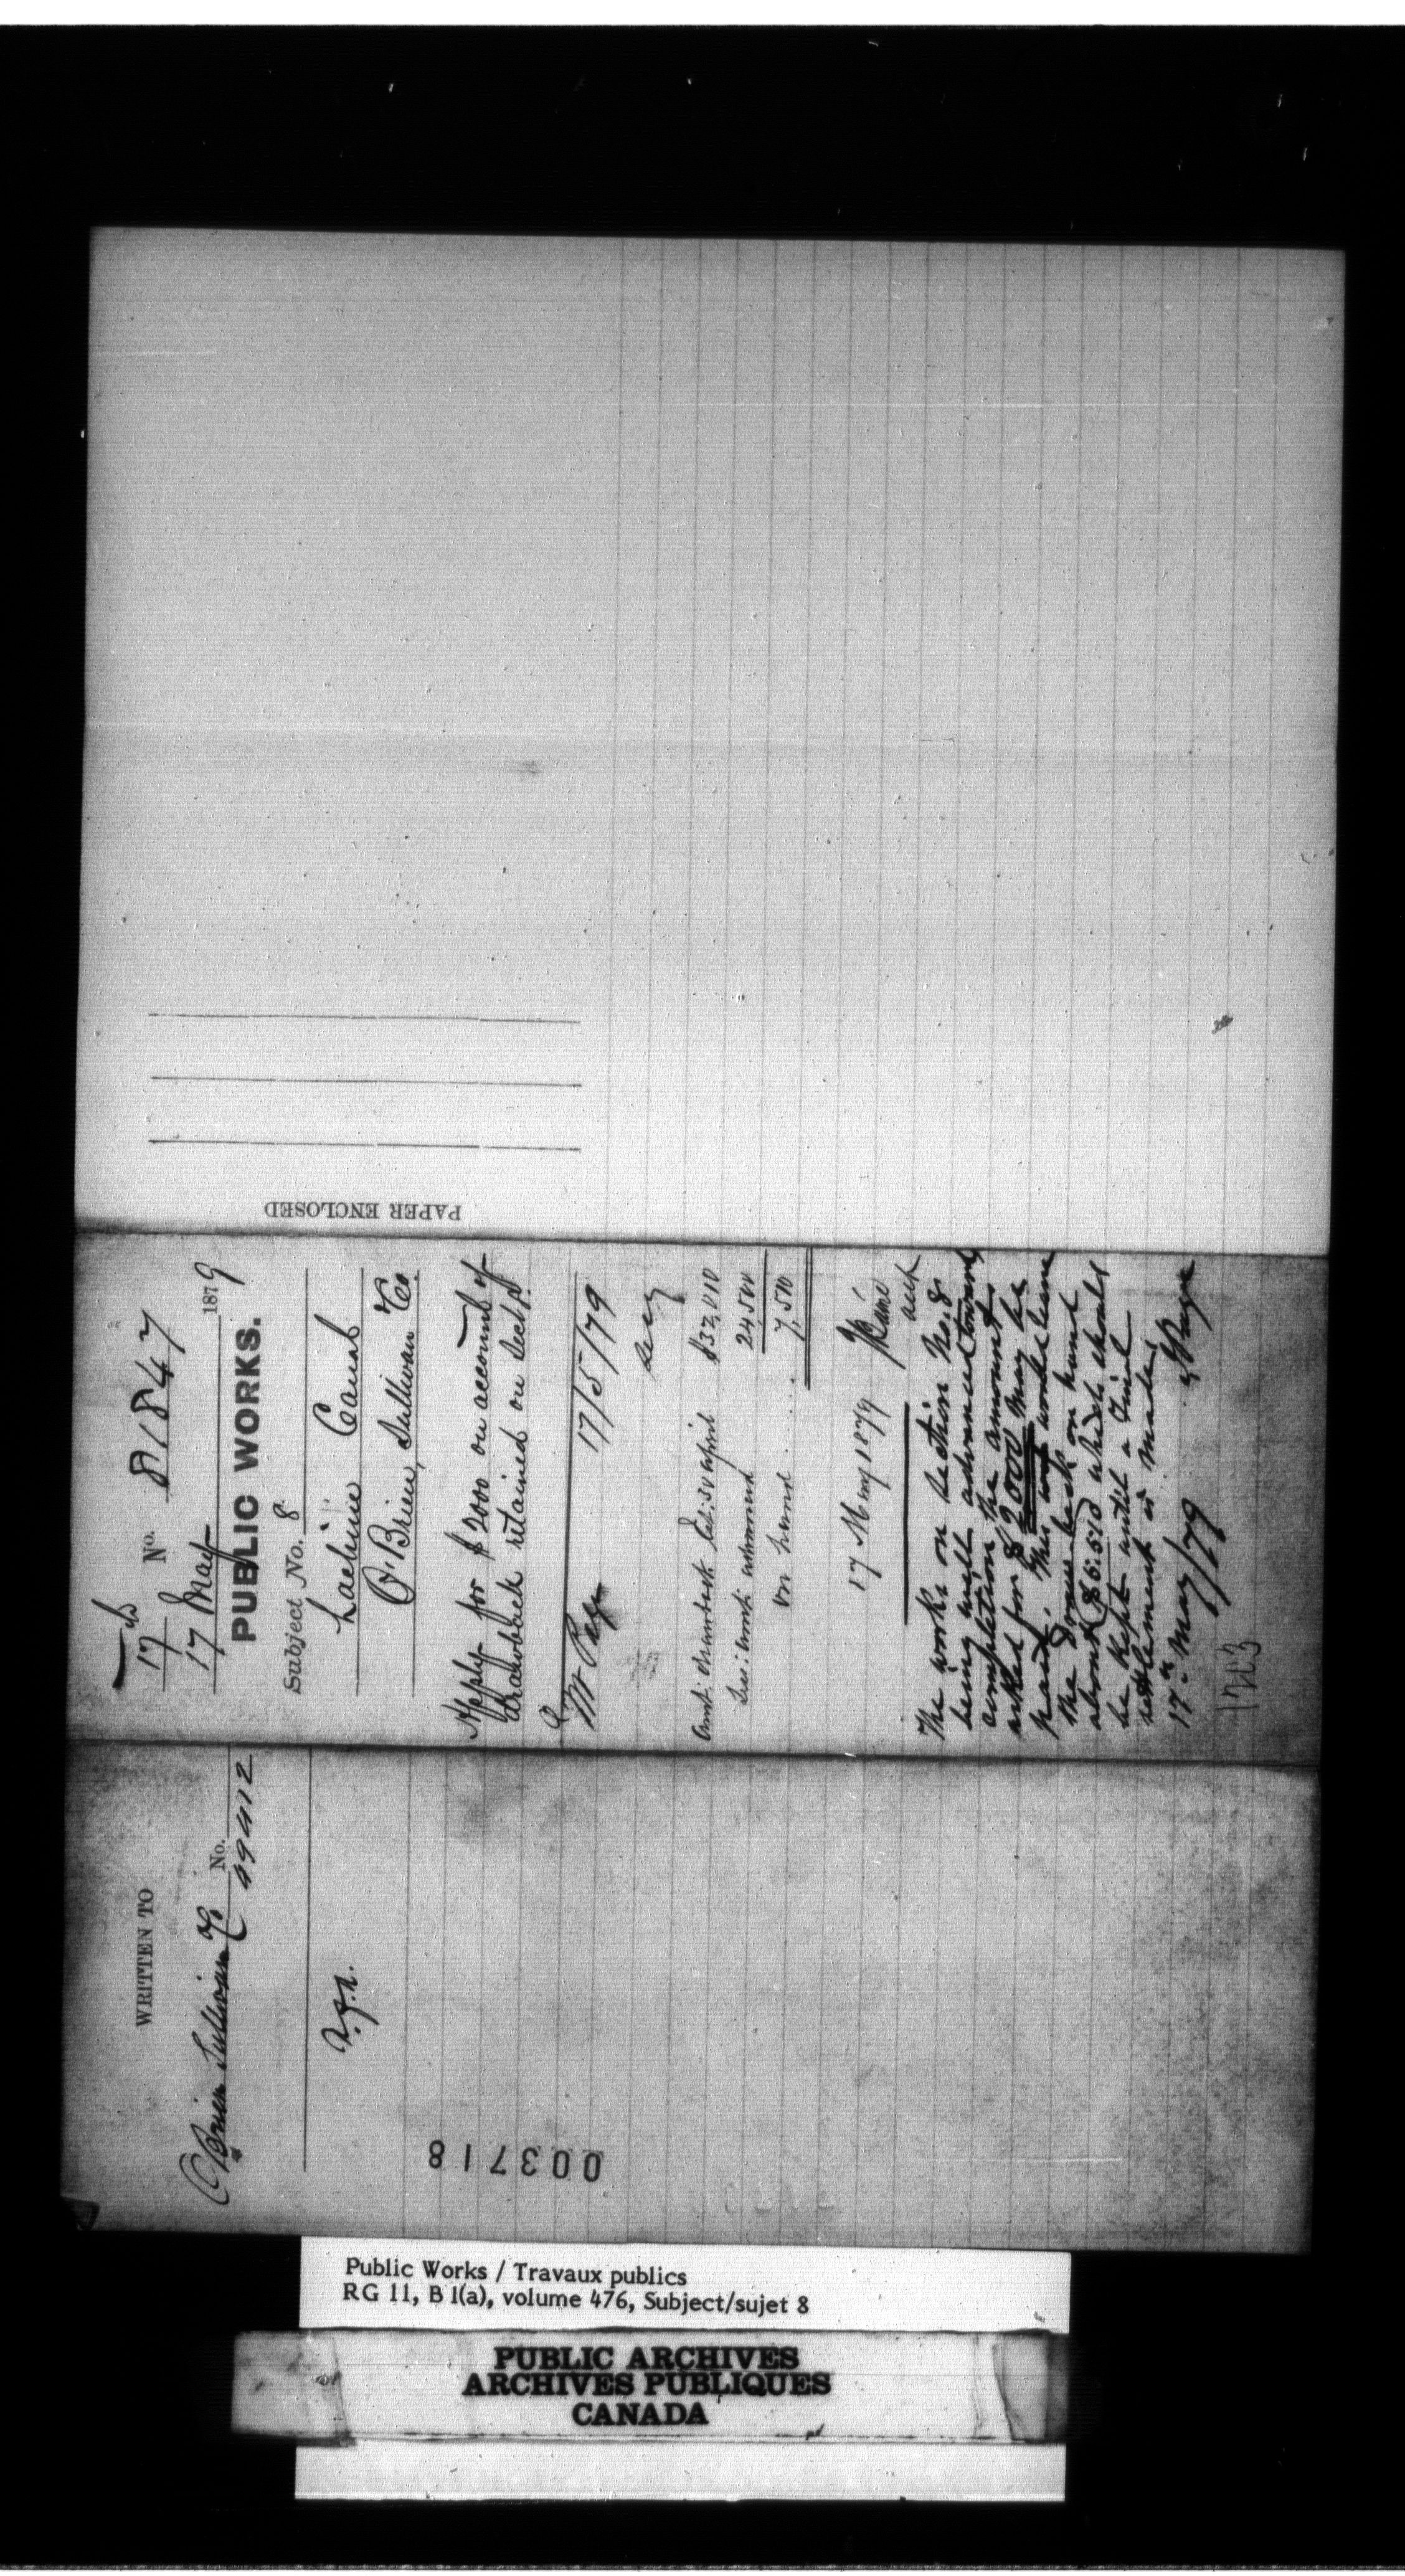 17 No. 81847
17 May 1879
PUBLIC WORKS.
Subject No. 8
Lachine Canal
O'Brien, Sullivan & Co.
Apply for $2000 on account of
drawback retained on Sect. 8.
Mr Page 17/5/79
Amt. drawback Est: 30 April $32,010
24,500
on hand .... 7,510
17 May 1879
The works on Section No. 8
being well advanced towards
completion the amount
asked for $2000 may be
paid. This will leave
the drawback on hand
about $5,510 which should
be kept until a final
settlement is made.
17th May/79 Page
1203
PAPER ENCLOSED
WRITTEN TO
O'Brien Sullivan & Co No. 49412
003718
Public Works / Travaux publics
RG 11, B 1(a), volume 476, Subject/sujet 8
PUBLIC ARCHIVES
ARCHIVES PUBLIQUES
CANADA